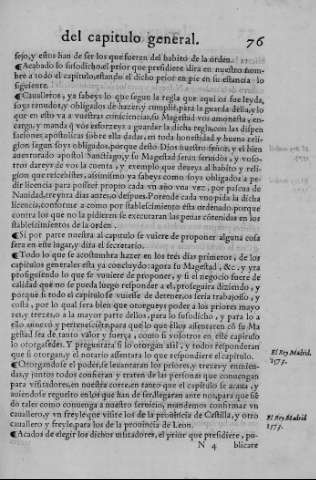 del capitulo general. 76
sejo, y estos han de ser los que fueran del habito de la orden.
¶Acabado lo susodicho, el prior que presidiere dira en nuestro nom
bre a todo el capitulo, estando el dicho prior en pie en su estancia lo
siguiente.
¶Caualleros, ya sabeys lo que segun la regla que aqui os fue leyda,
soys tenudos, y obligados de hazer, y cumplir, para la guarda della, y lo
que en esto va a vuestras consciencias, su Magestad vos amonesta, en-
carga, y manda q̃ vos esforzeys a guardar la dicha regla, con las dispen
saciones apostolicas sobre ella dadas, en toda honestidad y bueno reli-
gion segun soys obligados, porque desto Dios nuestro señor, y el bien
auenturado apostol Sanctiago, y su Magestad seran seruidos, y voso-
tros dareys de vos la cuenta, y exemplo que deueys al habito y reli-
gion que recebistes, assimismo ya sabeys como soys obligados a pe-
dir licencia para posseer propio cada vn año vna vez, por pascua de
Nauidad, treynta dias antes, o despues. Porende cada vno pida la dicha
licencia, conforme a como por stablecimiento esta ordenado, porque
contra los que no la pidieren se executaran las penas cõtenidas en los
stablecimientos de la orden.
¶Si por parte nuestra al capitulo se vuiere de proponer alguna cosa
sera en este lugar, y dira el secretario.
¶Todo lo que se acostumbra hazer en los tres dias primeros, de los
capitulos generales esta ya concluydo: agora su Magestad, &c. y ya
prosiguiendo lo que se vuiere de proponer, y si el negocio fuere de
calidad que no se pueda luego responder a el, proseguira diziendo, y
porque si todo el capitulo se vuiesse de detener, os seria trabajoso, y
costa, por lo qual sera bien que otorgueys poder a los priores mayo
res, y trezes, o a la mayor parte dellos, para lo susodicho, y para lo a
ello anexo y perteneciẽte, para que lo que ellos assentaren cõ su Ma
gestad sea de tanto valor y fuerça, como si vosotros en este capitulo
lo otorgassedes. Y preguntara si lo otorgan assi, y todos responderan
que si otorgan, y el notario assentara lo que respondiere el capitulo.
¶Otorgandose el poder, se leuantaran los priores, y trezes y enmien-
das, y juntos todos confieran y traten de las personas que conuengan
para visitadores, en nuestra corte, en tanto que el capitulo se acaba, y
auiendose resuelto en los que han de ser, llegaran ante nos, para que sie
do tales como conuenga a nuestro seruicio, mandemos confirmar vn
cauallero, y vn freyle que visite los de la prouincia de Castilla, y otro
cauallero y freyle, para los de la prouincia de Leon.
¶Acabados de elegir los dichos visitadores, el prior que presidiere, pu-
N 4 blicare
El Rey Madrid.
1573.
El Rey Madrid
1573.